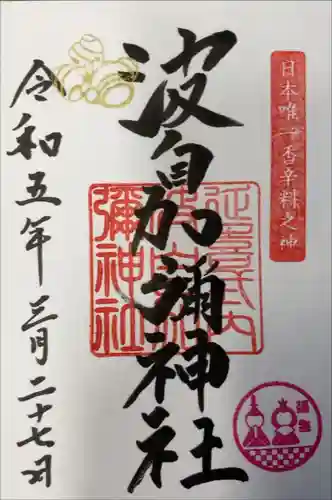 日本唯一香辛料之神
波自加彌神社
延喜式内
波自加
彌神社
令和五年三月二十七日